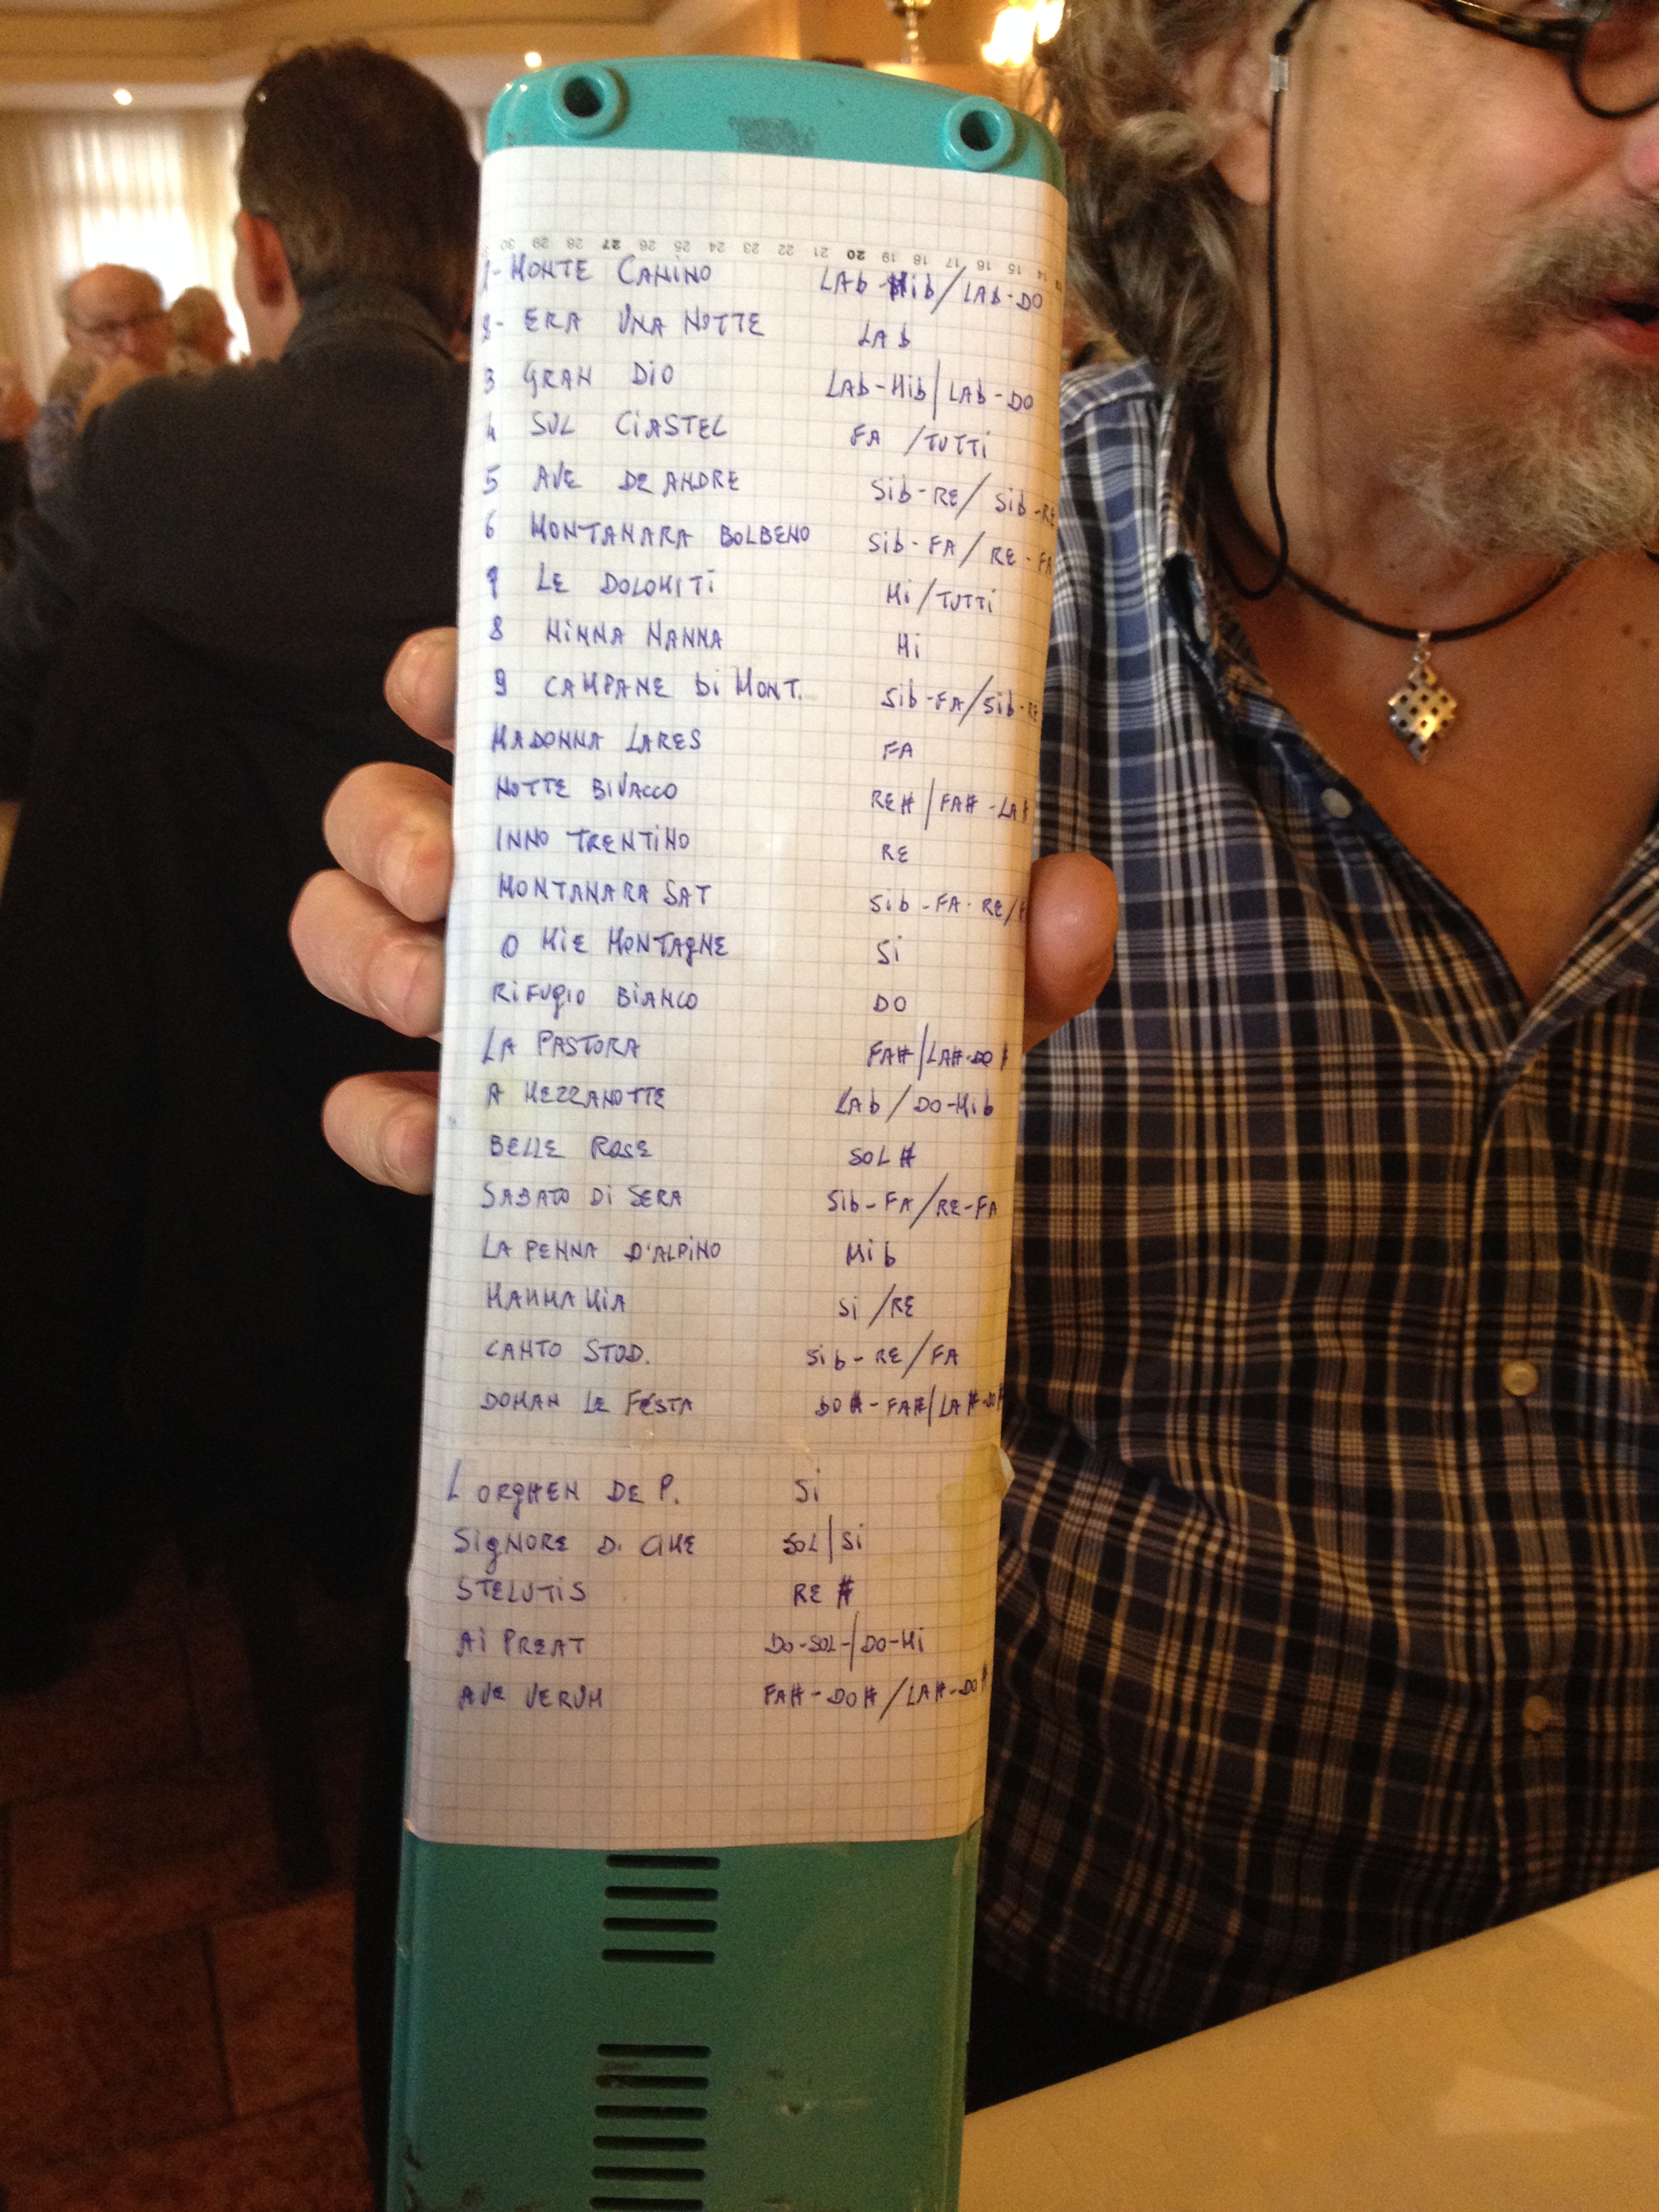 30 29 28 27 26 25 24 23 22 21 20 19 18 17 16 15 14
1- MONTE CANINO LAb-MIb/LAb-DO
2- ERA UNA NOTTE LAb
3 GRAN DIO LAb-MIb/LAb-DO
4 SUL CIASTEL FA /TUTTI
5 AVE DE ANDRE SIb-RE/SIb-RE
6 MONTANARA BOLBENO SIb-FA/RE-FA
7 LE DOLOMITI MI/TUTTI
8 NINNA NANNA MI
9 CAMPANE DI MONT. SIb-FA/SIb-RE
MADONNA LARES FA
NOTTE BIVACCO RE#/FA#-LA#
INNO TRENTINO RE
MONTANARA SAT SIb-FA-RE/
O MIE MONTAGNE SI
RIFUGIO BIANCO DO
LA PASTORA FA#/LA#-DO#
A MEZZANOTTE LAb/DO-MIb
BELLE ROSE SOL#
SABATO DI SERA SIb-FA/RE-FA
LA PENNA D'ALPINO MIb
MAMMA MIA SI/RE
CANTO STOD. SIb-RE/FA
DOMAN LE FESTA DO#-FA#/LA#-DO#
L ORGHEN DE P. SI
SIGNORE D. CIME SOL/SI
STELUTIS RE#
AI PREAT DO-SOL-/DO-MI
AVE VERUM FA#-DO#/LA#-DO#